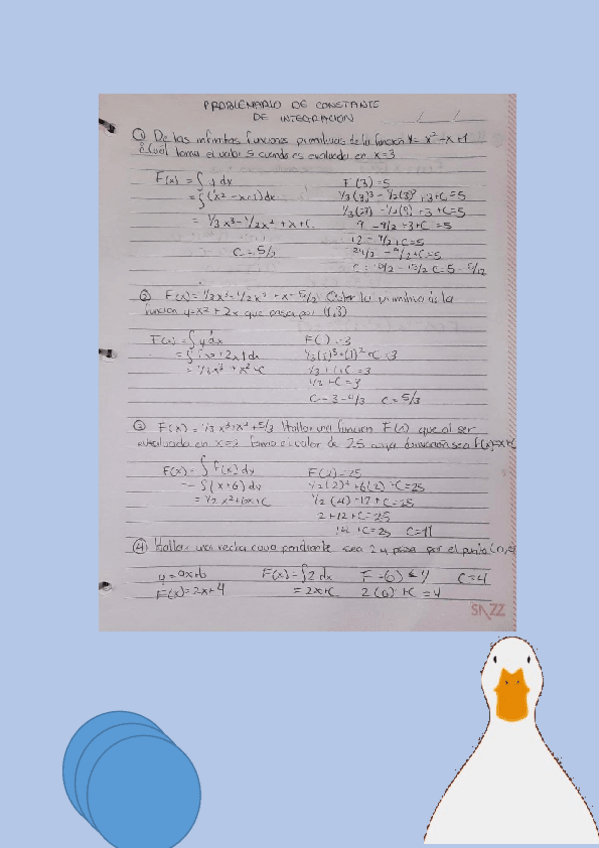 PROBLEMARIO DE CONSTANTE
DE INTEGRACION
① De las infinitas funciones primitivas de la función y= x² -x+1
¿Cuál toma el valor 5 cuando es evaluada en x=3
F(x) = ∫ y dx F(3)=5
= ∫(x² -x+1)dx 1/3(3)³ - 1/2(3)² +3+C=5
= 1/3x³-1/2x² +x+C. 1/3(27) -1/2(9) +3+C=5
9 -9/2 +3+C =5
12 - 9/2 +C=5
C = 5/2
② F(x)= 1/3x³-1/2x² +x+5/2 la primitiva de la
función y=x²+2x que pasa por (1,3)
F(x) = ∫ y dx F( ) =3
= ∫ x²+2x dx 1/3(1)³+(1)²+C=3
= 1/3x³ + x²+C 1/3+1+C=3
+C=3
C=3-4/3 C=5/3
③ F(x)= 1/3x³+x²+5/3 Hallar una función F(x) que al ser
evaluada en x=2 tome el valor de 25 cuya sea
F(x)= ∫ f(x)dx F(2)=25
= ∫(x+6)dx 1/2(2)²+6(2)+C=25
= 1/2x²+6x+C 1/2(4)+12+C=25
2+12+C=25
14+C=25 C=11
④ Hallar una recha cuya pendiente sea 2 y pase por el punto
y=ax+b F(x)=∫2dx C=4
F(x)=2x+4 =2x+C 2(0)+C=4